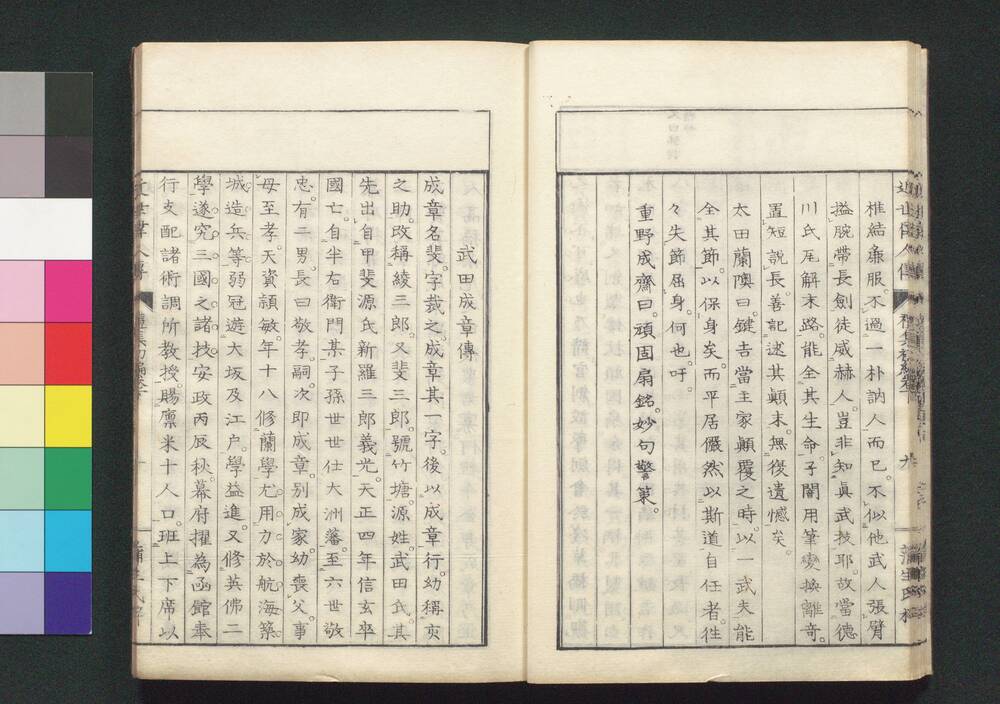 椎結廉服。不過一朴訥人而已。不似他武人張臂
搤腕帶長劍徒威赫人。豈非知眞武技耶。故當德
川氏瓦解末路。能全其生命。子闇用筆變換離奇。
置短說長。善記述其顚末。無復遺憾矣。
太田蘭陵曰。鍵吉當主家顚覆之時。以一武夫能
全其節。以保身矣。而平居儼然以斯道自任者。往
々失節屈身何也。吁。
重野成齋曰。頑固扇銘。妙句警策。
武田成章傳
成章名斐。字裁之。成章其一字。後以成章行。幼稱亥
之助。改稱綾三郎。又斐三郎。號竹塘。源姓。武田氏。其
先出自甲斐源氏新羅三郎義光。天正四年信玄卒
國亡。自半右衛門某子孫世世仕大洲藩。至六世敬
忠。有二男。長曰敬孝。嗣。次即成章。別成家。幼喪父。事
母至孝。天資頴敏。年十八修蘭學。尤用力於航海築
城造兵等。弱冠遊大坂及江戶。學益進。又修英佛二
學。遂究三國之諸技。安政丙辰秋。幕府擢爲函館奉
行支配諸術調所敎授。賜廩米十人口。班上下席以